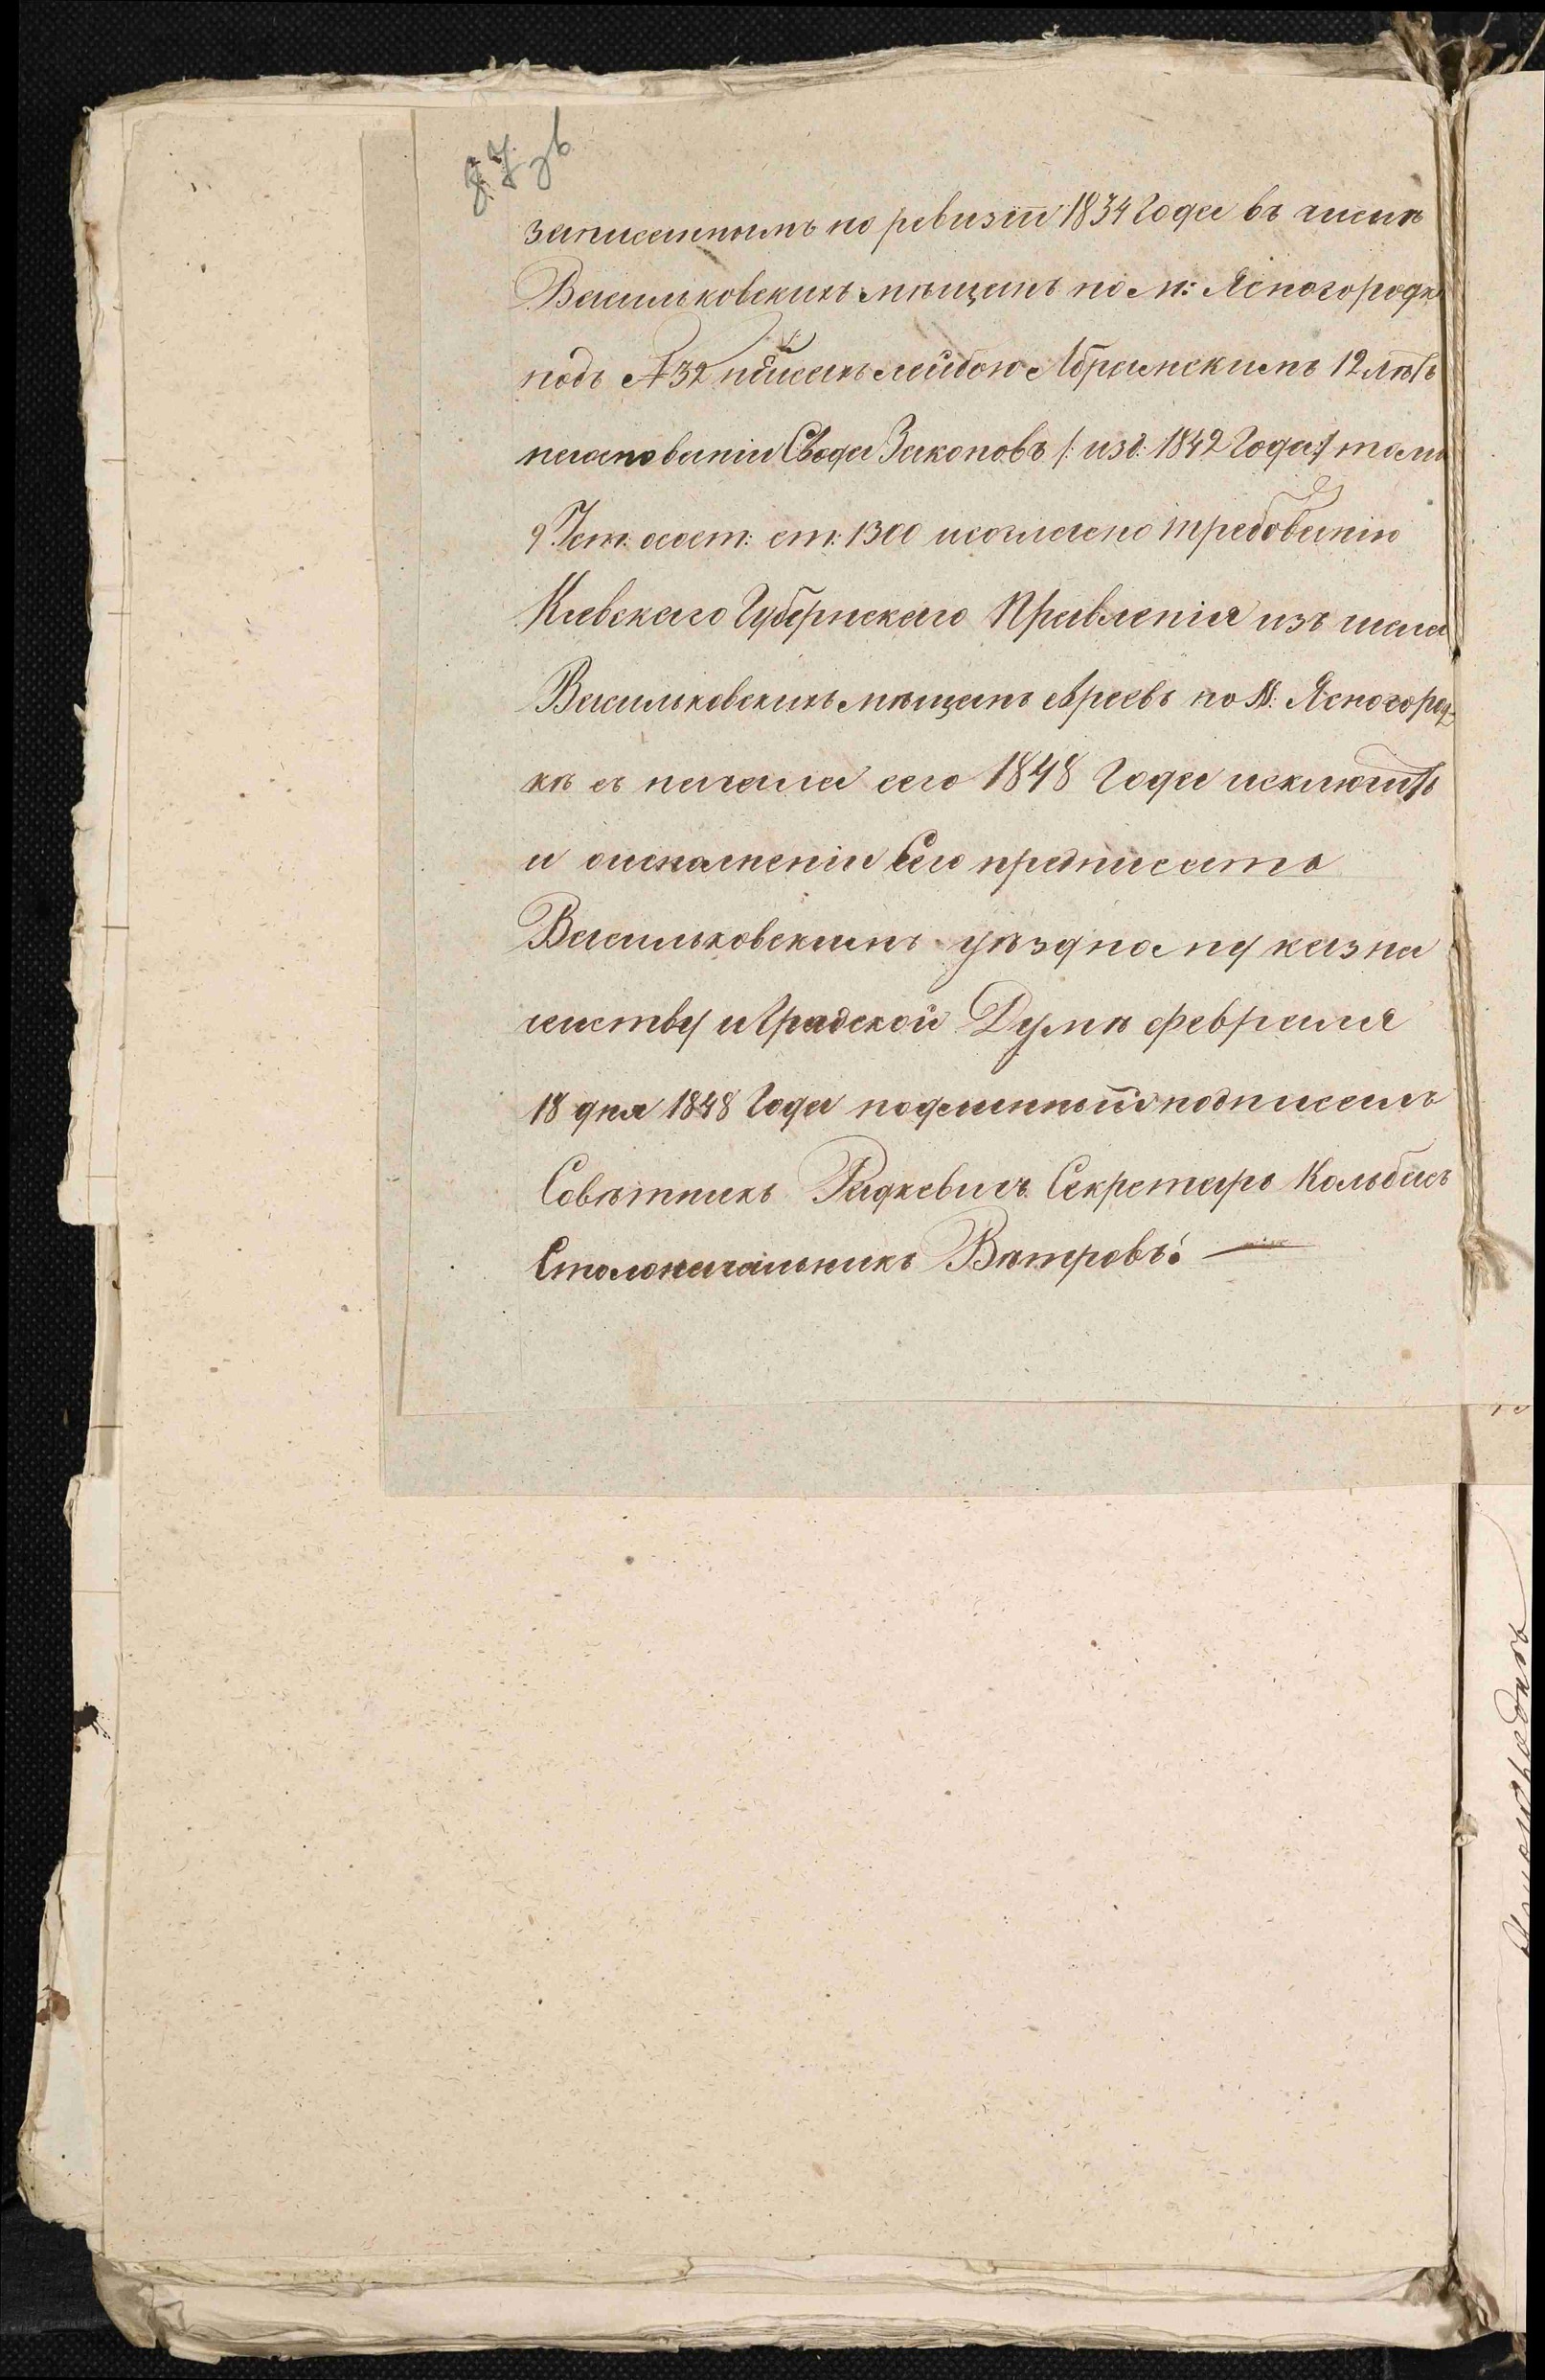 87 зв
записаннымъ по ревизіи 1834 Года въ числѣ
Васильковскихъ мѣщанъ по м: Ясногородк
подъ № 32 Лейбою Абрамскимъ 12 лѣтъ
наоснованіи Свода Законовъ /: изд: 1842 Года :/ тома
9 Уст: осост: ст: 1300 исогласно требованію
Кіевскаго Губернскаго Правленія изъ числа
Васильковскихъ мѣщанъ евреевъ по М. Ясногород-
кѣ съ начала сего 1848 Года исключить
и оисполненіи Сего предписать
Васильковскимъ уѣздному казна
чейству и Градской Думѣ февраля
18 дня 1848 Года подлинный подписалъ
Совѣтникъ Радкевичъ Секретарь Кольбасъ
Столоначальникъ Вѣтровъ: —